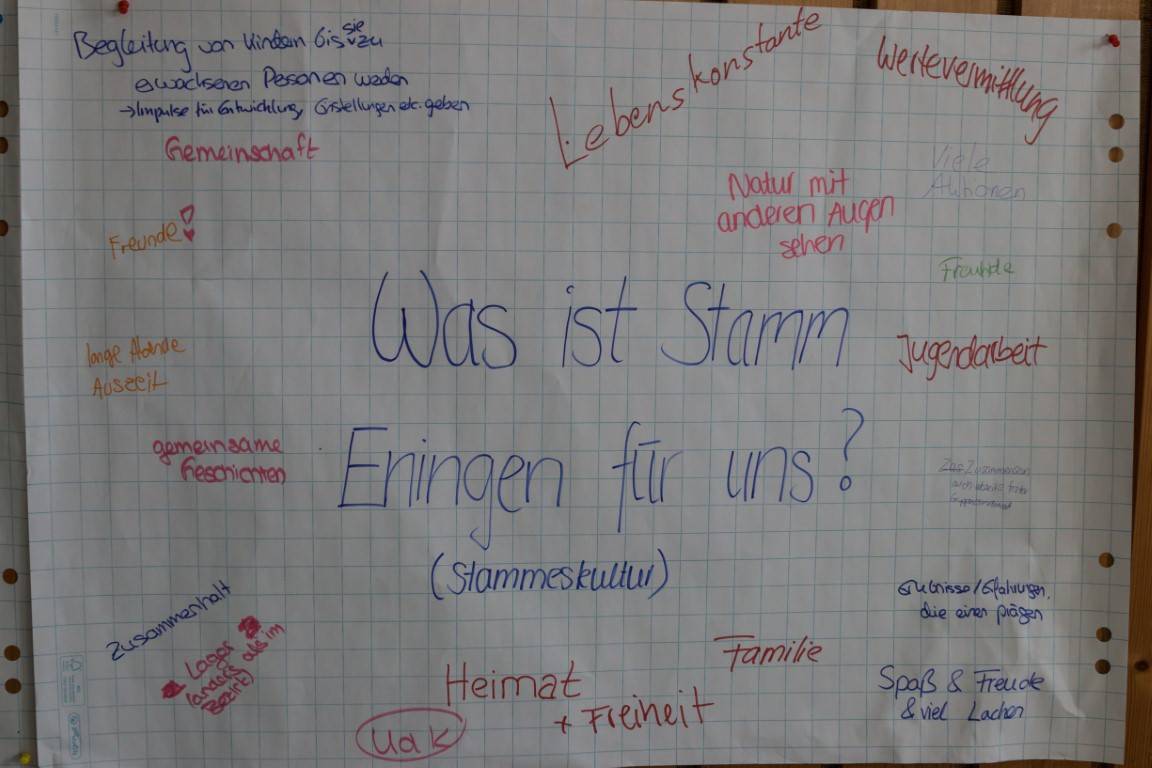 Begleitung von Kindern bis sie zu
erwachsenen Personen werden
→Impulse für Entwicklung, Einstellungen etc. geben
Gemeinschaft
Lebenskonstante
Wertevermittlung
Viele
Aktionen
Natur mit
anderen Augen
sehen
Freunde
Freunde
Was ist Stamm
Eningen für uns?
(Stammeskultur)
Jugendarbeit
lange Abende
Auszeit
gemeinsame
Geschichten
Zusammensein
auch abseits
Erlebnisse/Erfahrungen,
die einen prägen
Zusammenhalt
Lager
(anders als im
Bezirk)
Heimat
+ Freiheit
Familie
UdK
Spaß & Freude
& viel Lachen